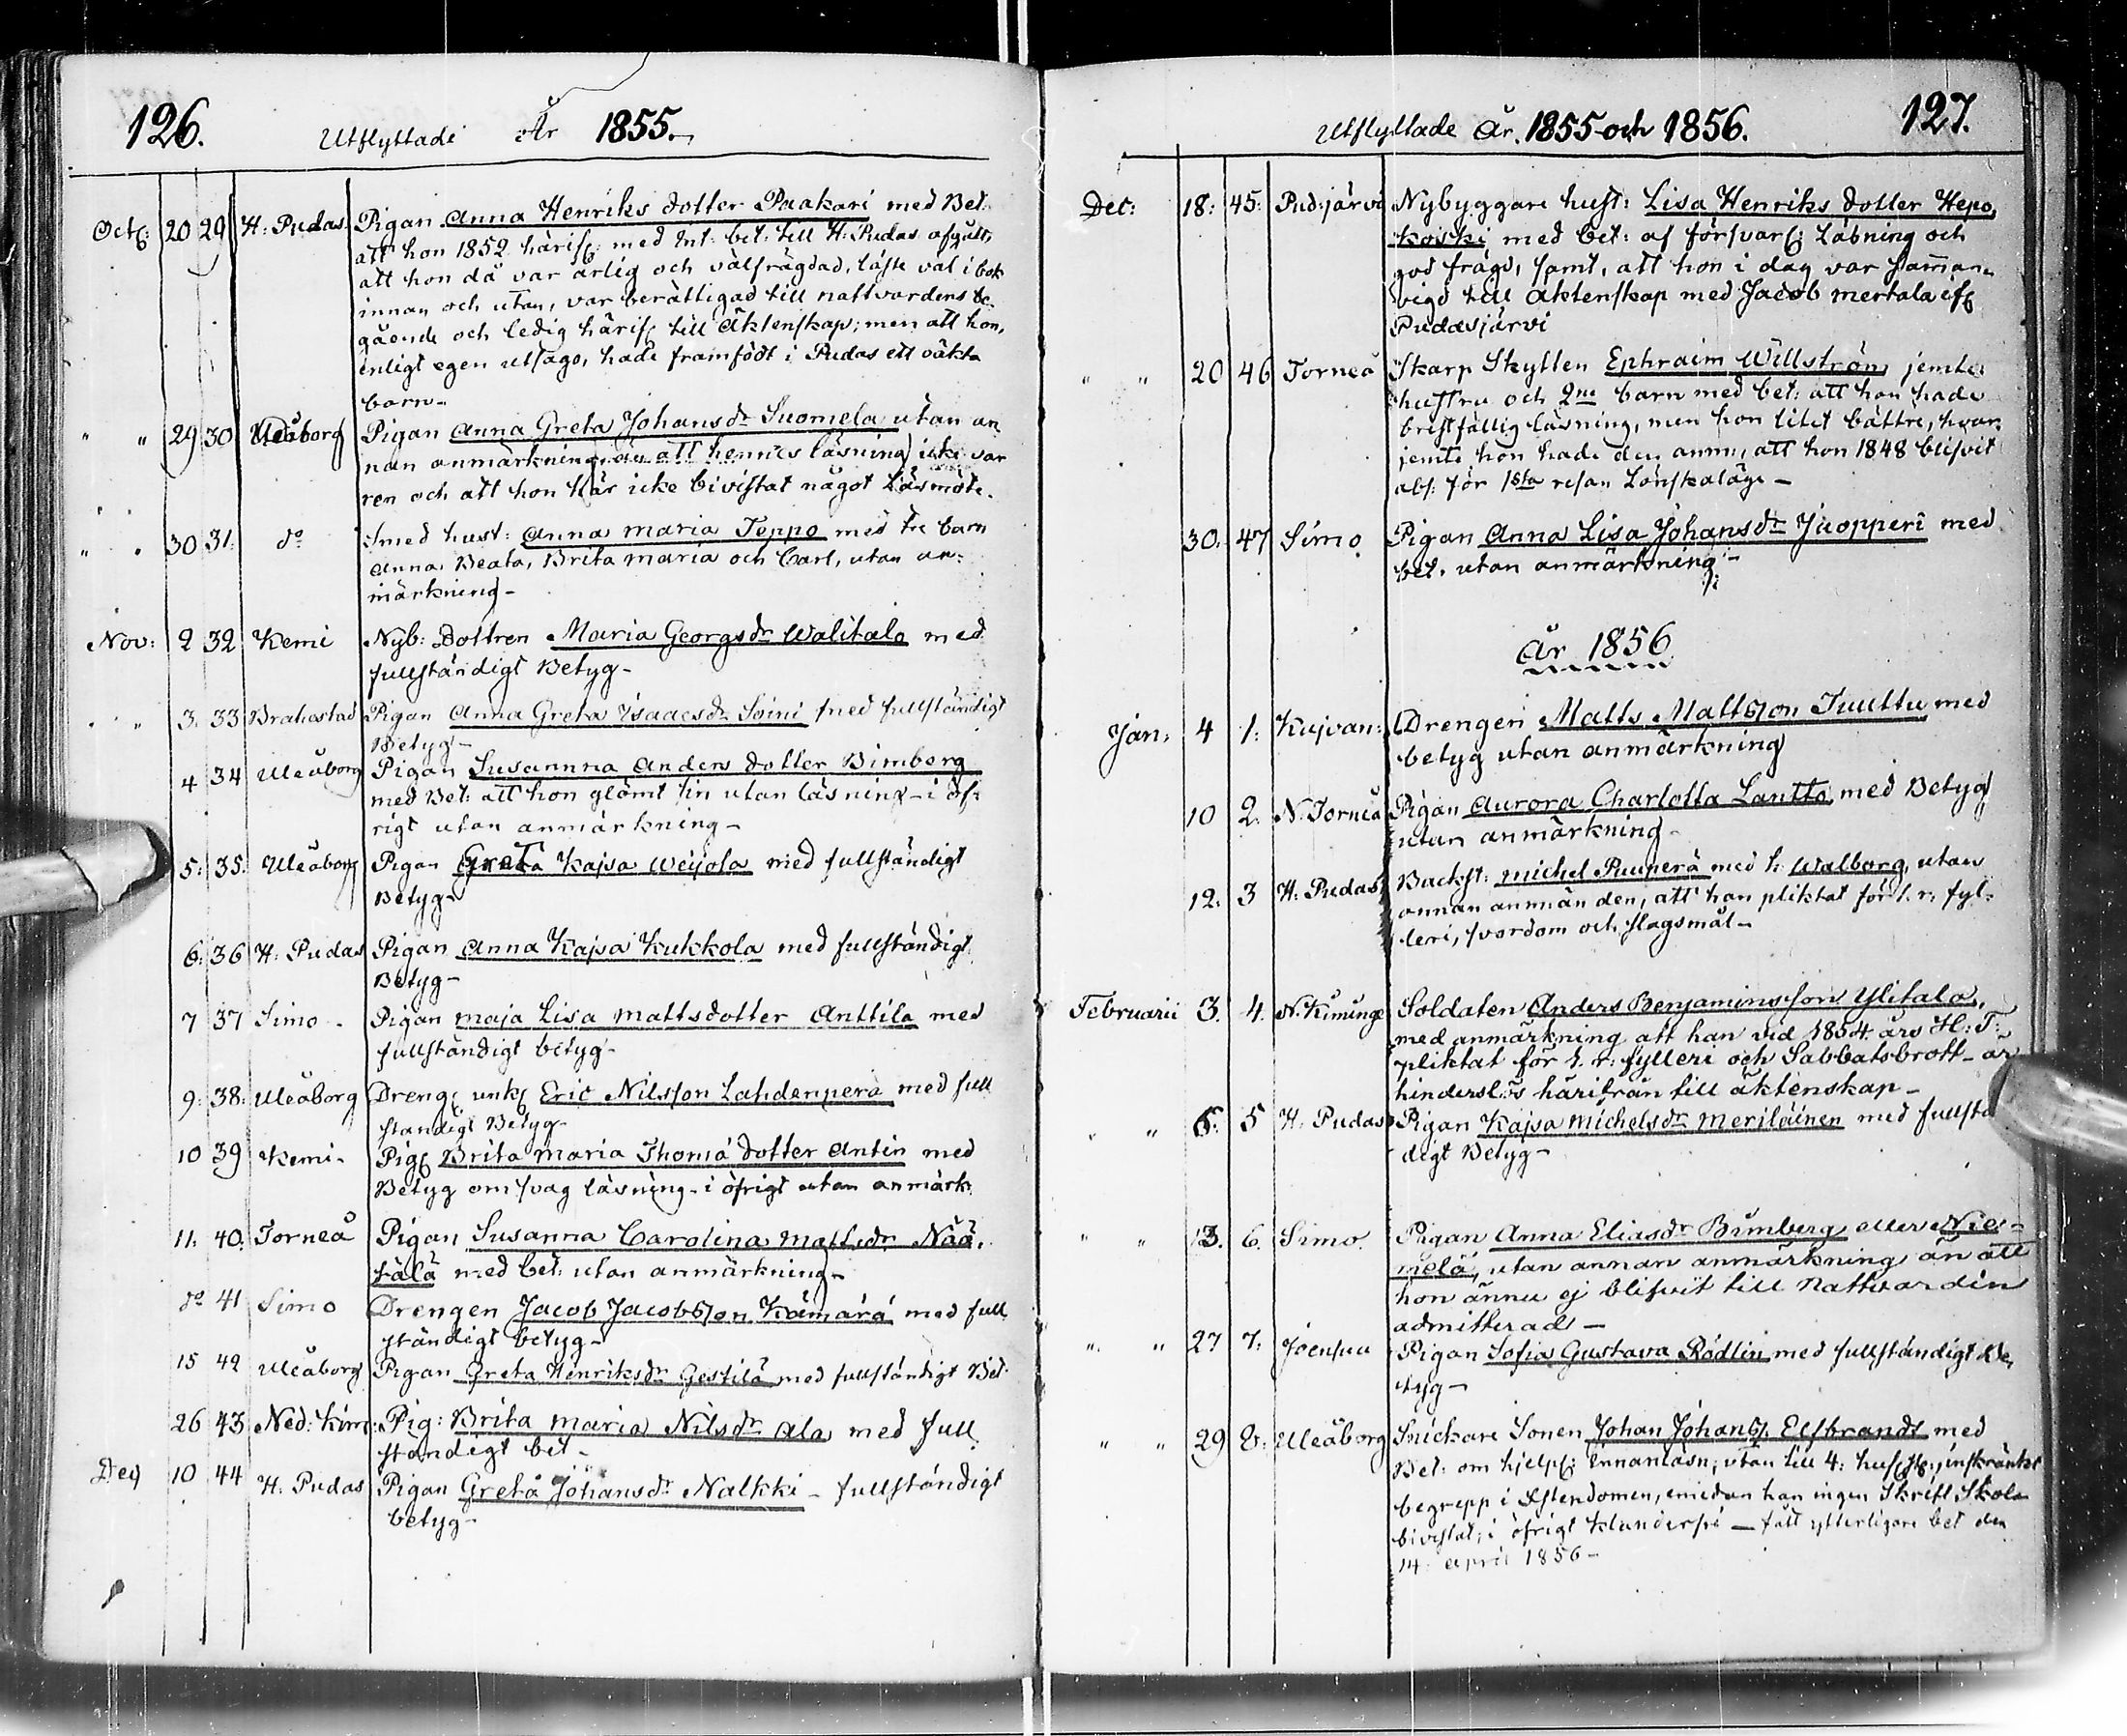 126.
Utflyttade År 1855.
Oct: 20 29 H: Pudas. Pigan Anna Henriks dotter Paakari med Bet.
att hon 1852 härif: med Int: bet: till H: Pudas afgått,
att hon då var ärlig och välfrägdad, läste väl i bok
innan och utan, var berättigad till nattvardens be-
gående och ledig härif: till Äktenskap; men att hon,
enligt egen utsago, hade framfödt i Pudas ett oäkta
barn-
" " 29 30 Uleåborg Pigan Anna Greta Johansdr Suomela utan an
nan anmärkning, än att hennes läsning icke var
ren och att hon här icke bivistat något Läsmöte.
" " 30 31. do Smed hust: Anna Maria Teppo med tre barn
Anna Beata, Brita Maria och Carl, utan an-
märkning-
Nov: 2 32 Kemi Nyb: Dottren Maria Georgsdr Walitalo med
fullständigt Betyg-
" " 3. 33 Brahestad Pigan Anna Greta Isaacsdr Soini med fullständigt
Betyg-
4 34 Uleåborg Pigan Susannna Anders dotter Bimberg
med Bet: att hon glömt sin utan läsning - i öf-
rigt utan anmärkning-
5: 35. Uleåborg Pigan Greta Kajsa Weijola med fullständigt
Betyg-
6: 36 H: Pudas Pigan Anna Kajsa Kukkola med fullständigt
Betyg-
7 37 Simo - Pigan Maja Lisa Mattsdotter Anttila med
fullständigt betyg-
9: 38: Uleåborg Dreng: unk: Eric Nilsson Lahdenperä med full
ständigt Betyg-
10 39 Kemi- Pig: Brita Maria Thomä dotter Antin med
Betyg om svag läsning - i öfrigt utan anmärk.
11. 40. Torneå Pigan Susanna Carolina Mattsdr Nää-
tälä med bet: utan anmärkning-
do 41 Simo Drengen Jacob Jacobsson Kämärä med full
ständigt betyg-
15 42 Uleåborg Pigan Greta Henriksdr Gestilä med fullständigt Bet.
26 43 Ned: Kim: Pig: Brita Maria Nilsdr Ala med full
ständigt bet-
Dec 10 44 H: Pudas Pigan Greta Johansdr Nalkki - fullständigt
betyg-
Utflyttade År. 1855 och 1856. 127.
Dec: 18: 45: Pudjärvi Nybyggare hust: Lisa Henriks dotter Hepo-
koski med bet: af försvarl: Läsning och
god frägd, samt, att hon i dag var samman-
vigd till äktenskap med Jacob Mertala if:
Pudasjärvi
" " 20 46 Torneå Skarp Skytten Ephraim Willström jemte
hustru och 2ne barn med bet: att han hade
bristfällig läsning, men hon litet bättre, hvar-
jemte hon hade den anm:, att hon 1848 blifvit
abs: för 1sta resan Lönskaläge -
30. 47 Simo Pigan Anna Lisa Johansdr Juopperi med
bet. utan anmärkning-
År 1856
Jan: 4 1: Kujvan: Drengen Matts Mattsson Tuuttu med
betyg utan anmärkning
10 2. N. Torneå Pigan Aurora Charlotta Lantto med Betyg
utan anmärkning-
12. 3 H: Pudas Backst: Michel Puuperä med h: Walborg, utan
annan anm: än den, att han pliktat för 1. r. fyl-
leri, svordom och slagsmål-
Februarii 3. 4. N. Kiminge Soldaten Anders Benjaminsson Ylitalo,
med anmärkning att han vid 1854 års H: T:
pliktat för 1. r. fylleri och Sabbatsbrott - är
hinderslös härifrån till äktenskap-
" " 6: 5 H: Pudas Pigan Kajsa Michelsdr Meriläinen med fullstä
digt Betyg-
" " 13. 6. Simo. Pigan Anna Eliasdr Bimberg eller Nie-
melä, utan annan anmärkning än att
hon ännu ej blifvit till Nattvarden
admitterad -
" " 27 7: Joensuu Pigan Sofia Gustava Rödlin med fullständigt Be-
tyg-
" " 29 8: Uleåborg Snickare Sonen Johan Johanss. Elfbrandt med
Bet: om hjelpl: Innanläsn; utan till 4: inskränkt
begrepp i Xstendomen, emedan han ingen Skrift Skola
bivistat; i öfrigt klanderfri - fått ytterligare bet den
14 April 1856-